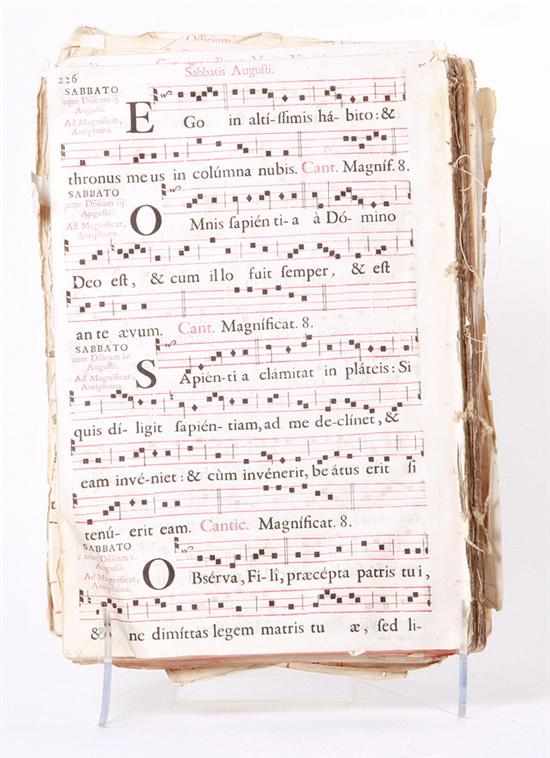 226
Sabbatis Augusti.
SABBATO
ante Dñicam ij
Augusti.
Ad Magnificat,
Antiphona.
EGo in altíſſimis há- bito: &
thronus meus in colúmna nubis. Cant. Magníf. 8.
SABBATO
ante Dñicam iij
Auguſti
Ad Magnificat,
Antiphona.
OMnis ſapién ti-a à Dó- mino
Deo eſt, & cum illo fuit ſemper, & eſt
ante ævum. Cant. Magníficat. 8.
SABBATO
ante Dñicam
Auguſti.
Ad Magnificat
Antiphona.
SApién-ti a clámitat in pláteis: Si
quis dí- ligit ſapién- tiam, ad me de-clínet, &
eam invé-niet: & cùm invénerit, beátus erit ſi
tenú- erit eam. Cantic. Magníficat. 8.
SABBATO
Dñicam
Auguſti.
Ad Magnificat,
Antiphona.
OBſérva, Fi-lî, præcépta patris tui,
& ne dimíttas legem matris tu æ, ſed li-